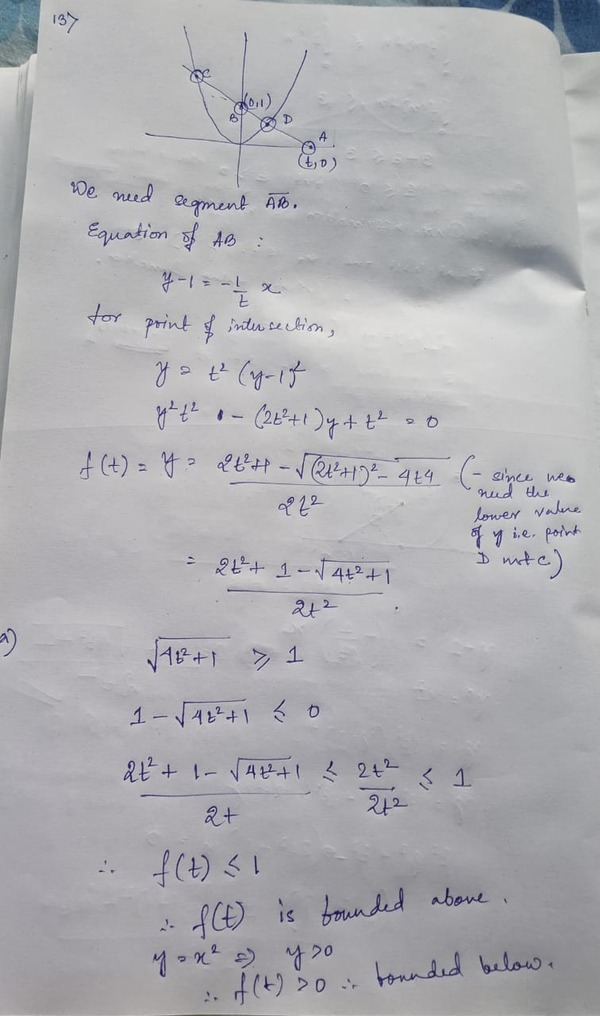 137
C
(0,1)
B
D
A
(t,0)
We need segment AB.
Equation of AB :
y-1 = -1/t x
for point of intersection,
y = t² (y-1)²
y²t² - (2t²+1)y + t² = 0
f(t) = y = 2t²+1 - √(2t²+1)² - 4t4 / 2t² (- since we need the lower value of y i.e. point D not C)
= 2t² + 1 - √4t²+1 / 2t²
a)
√4t²+1 ⩾ 1
1 - √4t²+1 ⩽ 0
2t² + 1 - √4t²+1 / 2t ⩽ 2t² / 2t² ⩽ 1
∴ f(t) ⩽ 1
∴ f(t) is bounded above.
y = x² ⇒ y>0
∴ f(t) >0 ∴ bounded below.